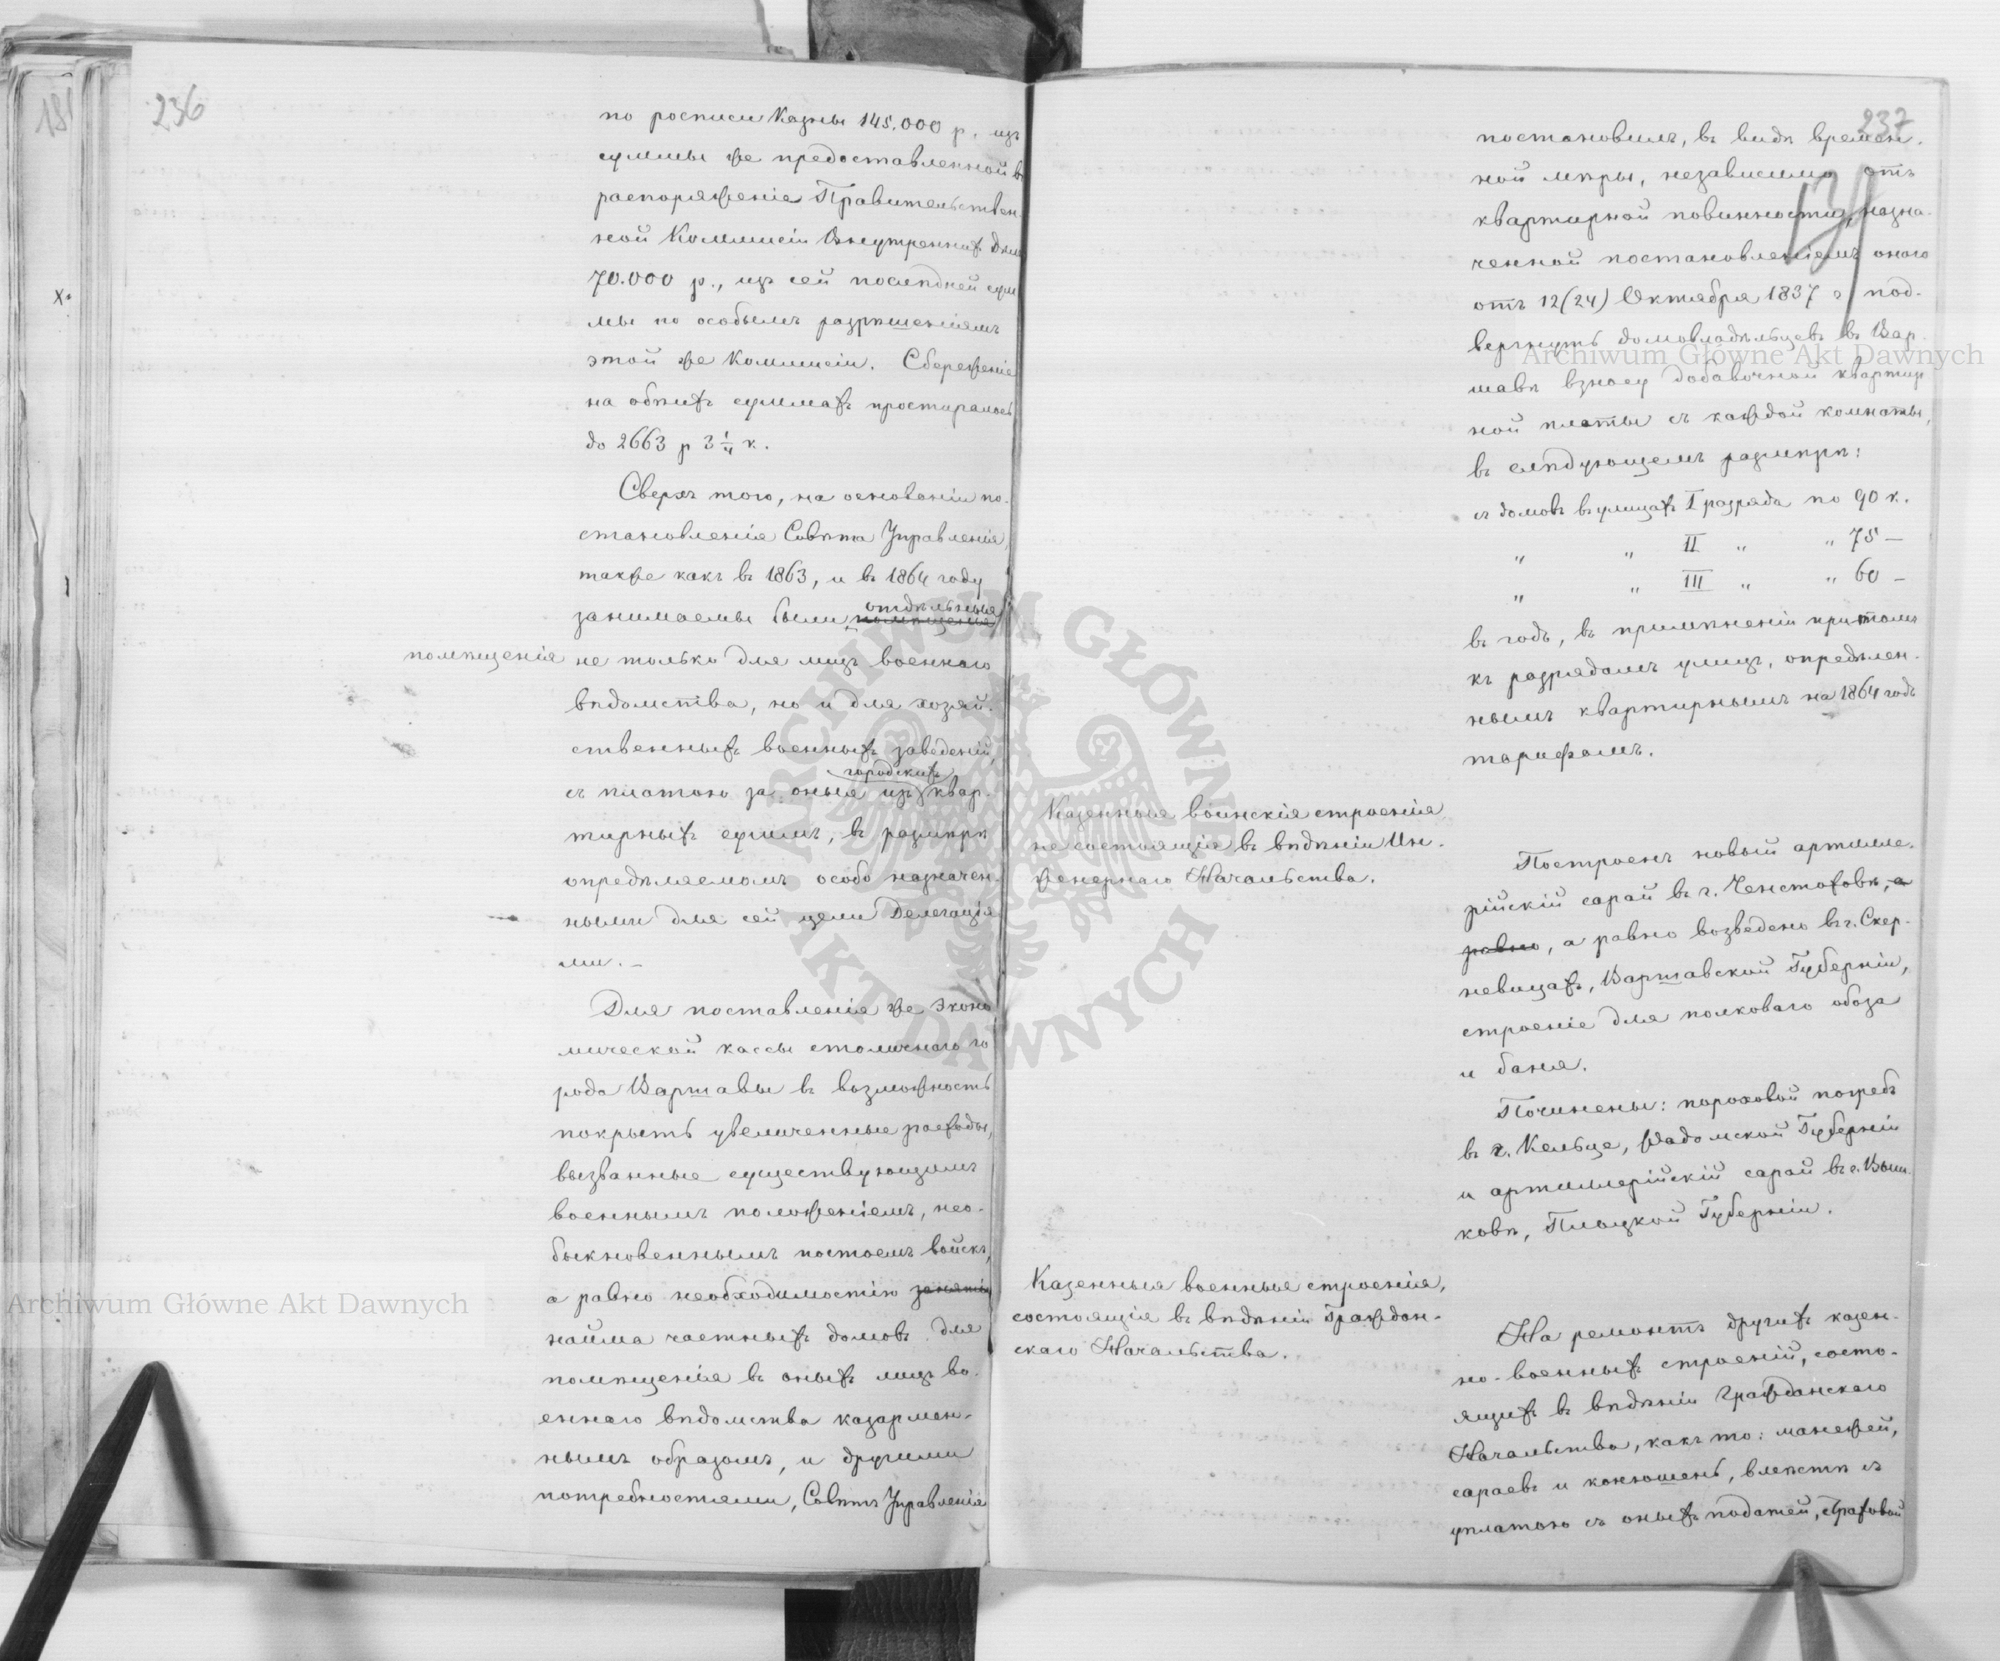 181
236
по росписи Казны 145.000 р. изъ
суммы же предоставленной въ
распоряженіе Правительствен-
ной Коммисіи Внутреннихъ Дѣлъ
70.000 р., изъ сей послѣдней сум
мы по особымъ разрѣшеніямъ
этой же Коммисіи. Сбереженіе
на обѣихъ суммахъ простиралось
до 2663 р 3 1/4 к.
Сверхъ того, на основаніи по-
становленія Совѣта Управленія,
также какъ въ 1863, и въ 1864 году
отдѣльныя
занимаемы были помѣщенія
помѣщенія
не только для лицъ военнаго
вѣдомства, но и для хозяй-
ственныхъ военныхъ заведеній,
городскихъ
съ платою за оныя изъ квар-
тирныхъ суммъ, въ размѣрѣ
опредѣляемомъ особо назначен-
ными для сей цѣли Делегація
ми. —
Для поставленія же эконо
мической кассы столичнаго го
рода Варшавы въ возможность
покрыть увеличенные расходы,
вызванные существующимъ
военнымъ положеніемъ, нео-
быкновеннымъ постоемъ войскъ,
а равно необходимостію занятія
найма частныхъ домовъ для
помѣщенія въ оныхъ лицъ во-
еннаго вѣдомства казармен-
нымъ образомъ, и другими
потребностями, Совѣтъ Управленія
237
постановилъ, въ видѣ времен-
ной мѣры, независимо отъ
квартирной повинности, назна-
ченной постановленіемъ онаго
отъ 12(24) Октября 1837 г под-
вергнуть домовладѣльцевъ въ Вар-
шавѣ взносу добавочной квартир
ной платы съ каждой комнаты,
въ слѣдующемъ размѣрѣ:
съ домовъ въ улицахъ I разряда по 90 к.
„ „ II „ „ 75 —
„ „ III „ „ 60 —
въ годъ, въ примѣненіи притомъ
къ разрядамъ улицъ, опредѣлен-
нымъ квартирнымъ на 1864 годъ
тарифомъ.
Казенныя воинскія строенія
не состоящія въ вѣдѣніи Ин-
женернаго Начальства.
Построенъ новый артилле-
рійскій сарай въ г. Ченстоховѣ, а
равно, а равно возведено въ г. Скер-
невицахъ, Варшавской Губерніи,
строеніе для полковаго обоза
и баня.
Починены: пороховой погребъ
въ г. Кельце, Радомской Губерніи
и артиллерійскій сарай въ г. Выш-
ковѣ, Плоцкой Губерніи.
Казенныя военныя строенія,
состоящія въ вѣдѣніи Граждан-
скаго Начальства.
На ремонтъ другихъ казен-
но-военныхъ строеній, состо-
ящихъ въ вѣдѣніи Гражданскаго
Начальства, какъ то: манежей,
сараевъ и конюшень, вмѣстѣ съ
уплатою съ оныхъ податей, страховой
Archiwum Główne Akt Dawnych
Archiwum Główne Akt Dawnych
ARCHIWUM GŁÓWNE AKT DAWNYCH